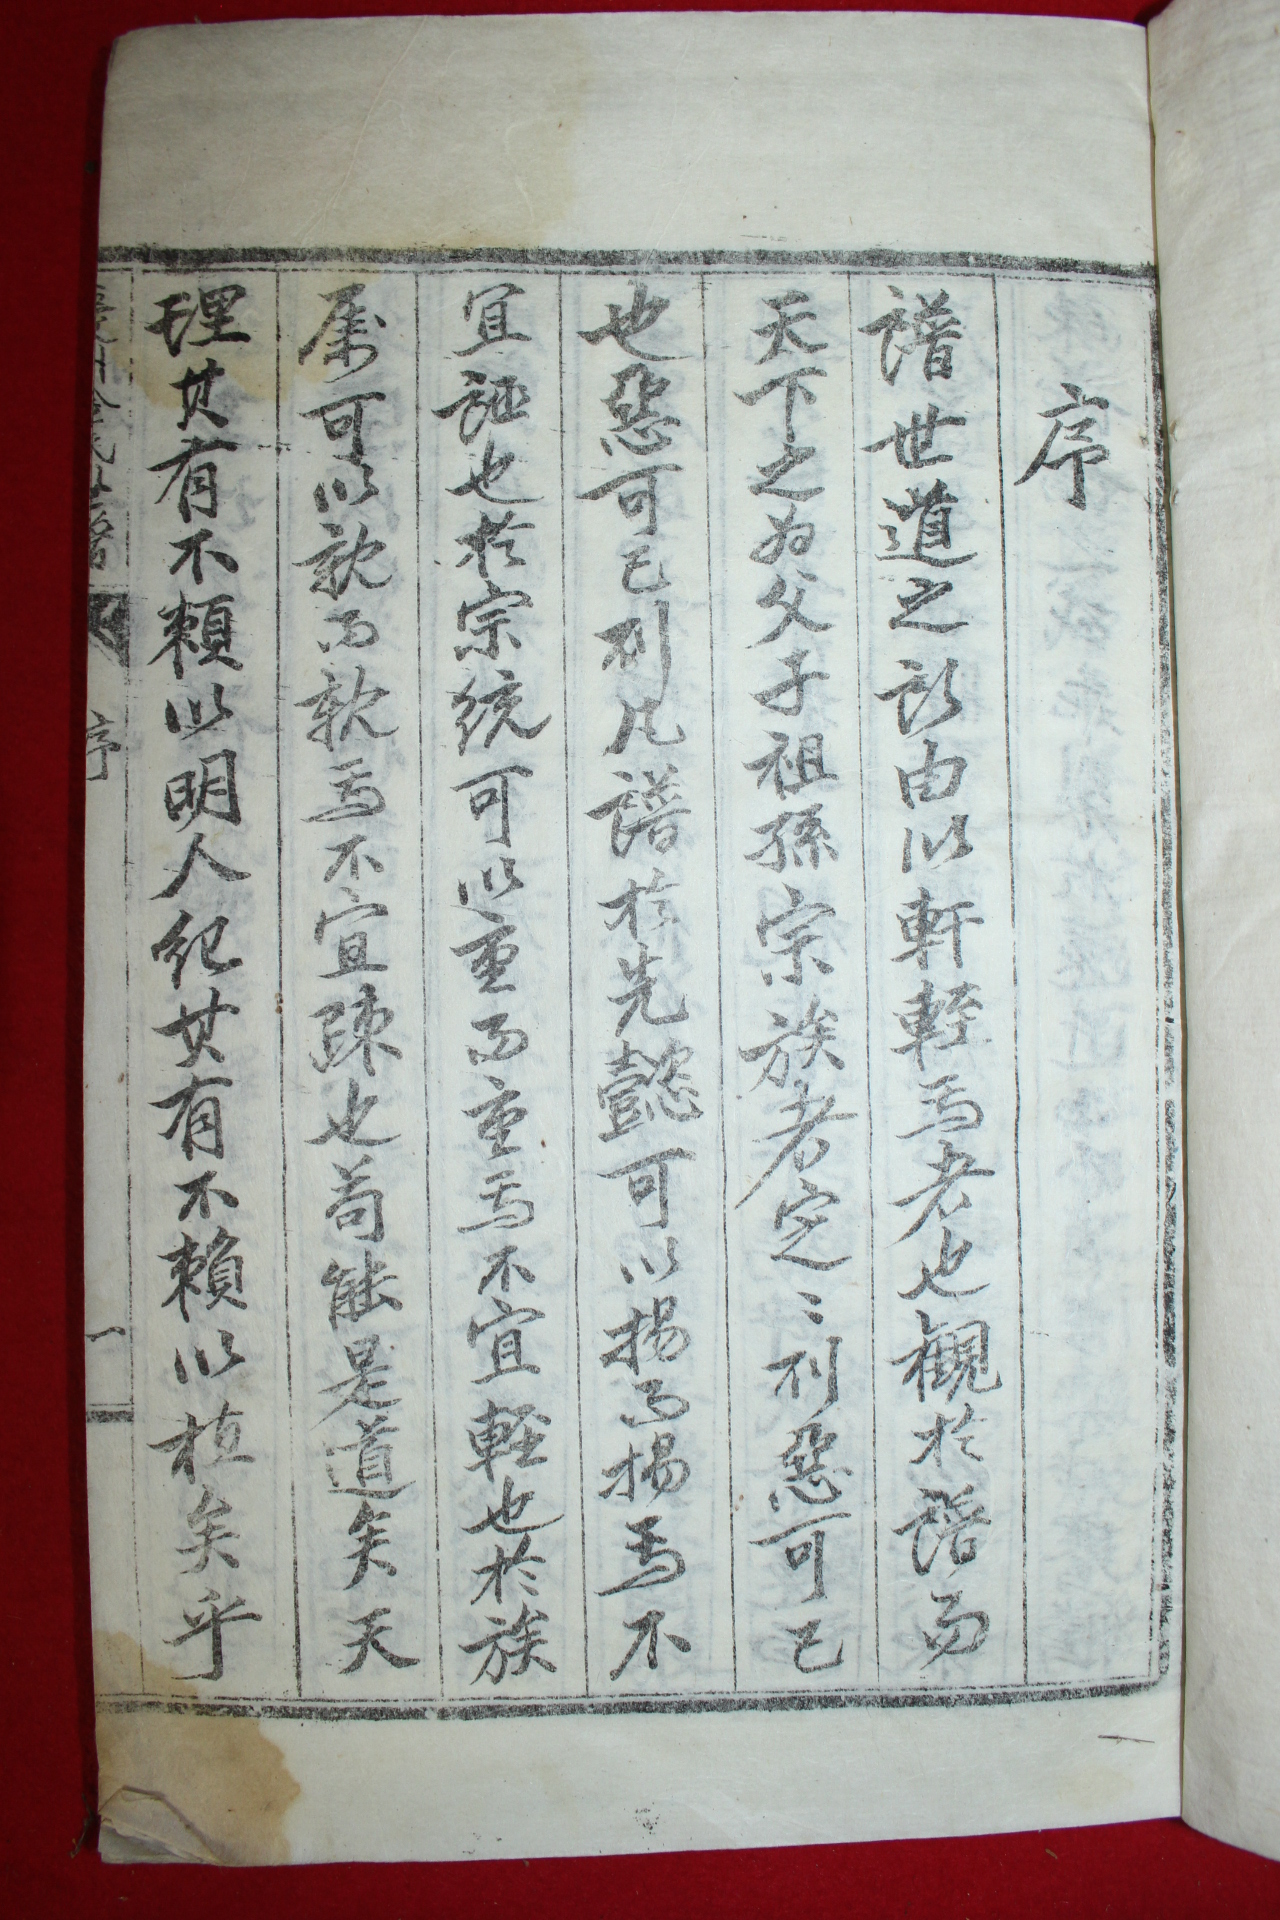 序
譜世道之所由以軒輊焉者也觀於譜而
天下之為父子祖孫宗族者定〻列惡可已
也惡可已列凡譜於先懿可以揚而揚焉不
宜誣也於宗統可以重而重焉不宜輕也於族
屬可以親而親焉不宜踈也苟能是道矣天
理其有不賴以明人紀其有不賴以植矣乎
序
一